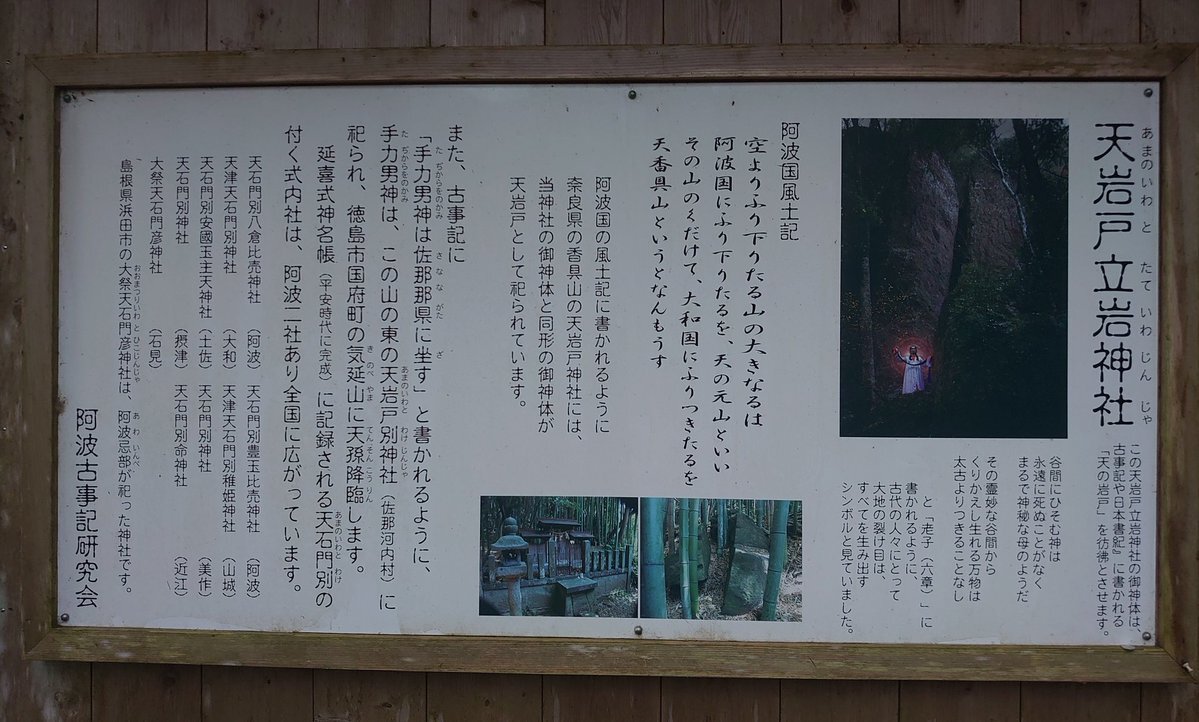 天岩戸立岩神社
あまの いわ と たて いわ じん じゃ
この天岩戸立岩神社の御神体は、
古事記や日本書紀』に書かれる
「天の岩戸」を彷彿とさせます。
谷間にひそむ神は
永遠に死ぬことがなく
まるで神秘な母のようだ
その霊妙な谷間から
くりかえし生れる万物は
太古よりつきることなし
と「老子（六章）」に
書かれるように、
古代の人々にとって
大地の裂け目は、
すべてを生み出す
シンボルと見ていました。
阿波国風土記
空よりふり下りたる山の大きなるは
阿波国にふり下りたるを、天の元山といい
その山のくだけて、大和国にふりつきたるを
天香具山というとなんもうす
阿波国の風土記に書かれるように
奈良県の香具山の天岩戸神社には、
当神社の御神体と同形の御神体が
天岩戸として祀られています。
また、古事記に
「手力男神は佐那那県に坐す」と書かれるように、
た ぢからをのかみ さ な な がた ざ
手力男神は、この山の東の天岩戸別神社（佐那河内村）に
た ぢからをのかみ あまのいわと わけ じんじゃ
祀られ、徳島市国府町の気延山に天孫降臨します。
き のべ やま てん そん こう りん
延喜式神名帳（平安時代に完成）に記録される天石門別の
あまのいわと わけ
付く式内社は、阿波二社あり全国に広がっています。
天石門別八倉比売神社（阿波） 天石門別豊玉比売神社（阿波）
天津天石門別神社（大和） 天津天石門別稚姫神社（山城）
天石門別安國玉主天神社（土佐） 天石門別神社（美作）
天石門別神社（摂津） 天石門別命神社（近江）
大祭天石門彦神社（石見）
島根県浜田市の大祭天石門彦神社は、阿波忌部が祀った神社です。
おおまつりいわ と ひこじんじゃ あ わ いんべ
阿波古事記研究会